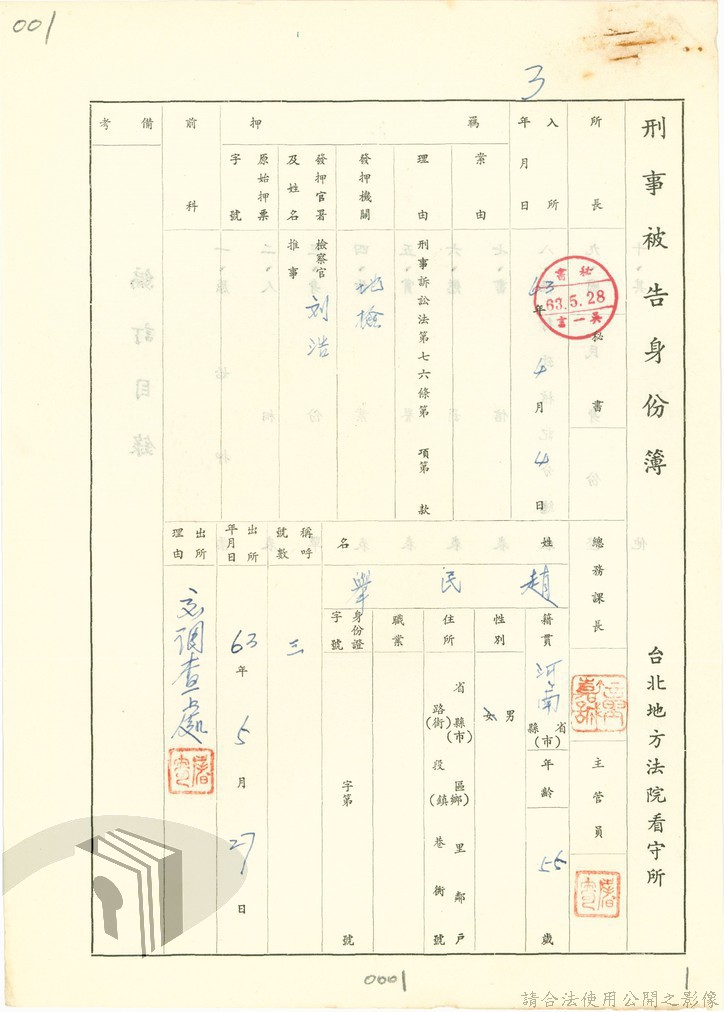 001
3
刑事被告身份簿
台北地方法院看守所
所長
秘書
總務課長
主管員
秘書
63.5.28
吳一言
入所年月日
63年4月4日
羈押
案由
理由
刑事訴訟法第七六條第 項第 款
發押機關
地檢
發押官署及姓名
檢察官
推事
刘浩
原始押票字號
前科
備考
姓名
趙民舉
籍貫
河南
省縣(市)
年齡
55歲
性別
男女
住所
省縣(市)區鄉(鎮)里鄰戶
路(街)段巷衖號
職業
身份證字號
字第 號
稱呼號數
三
出所年月日
63年5月27日
出所理由
交調查處
編訂目錄
0001
1
請合法使用公開之影像